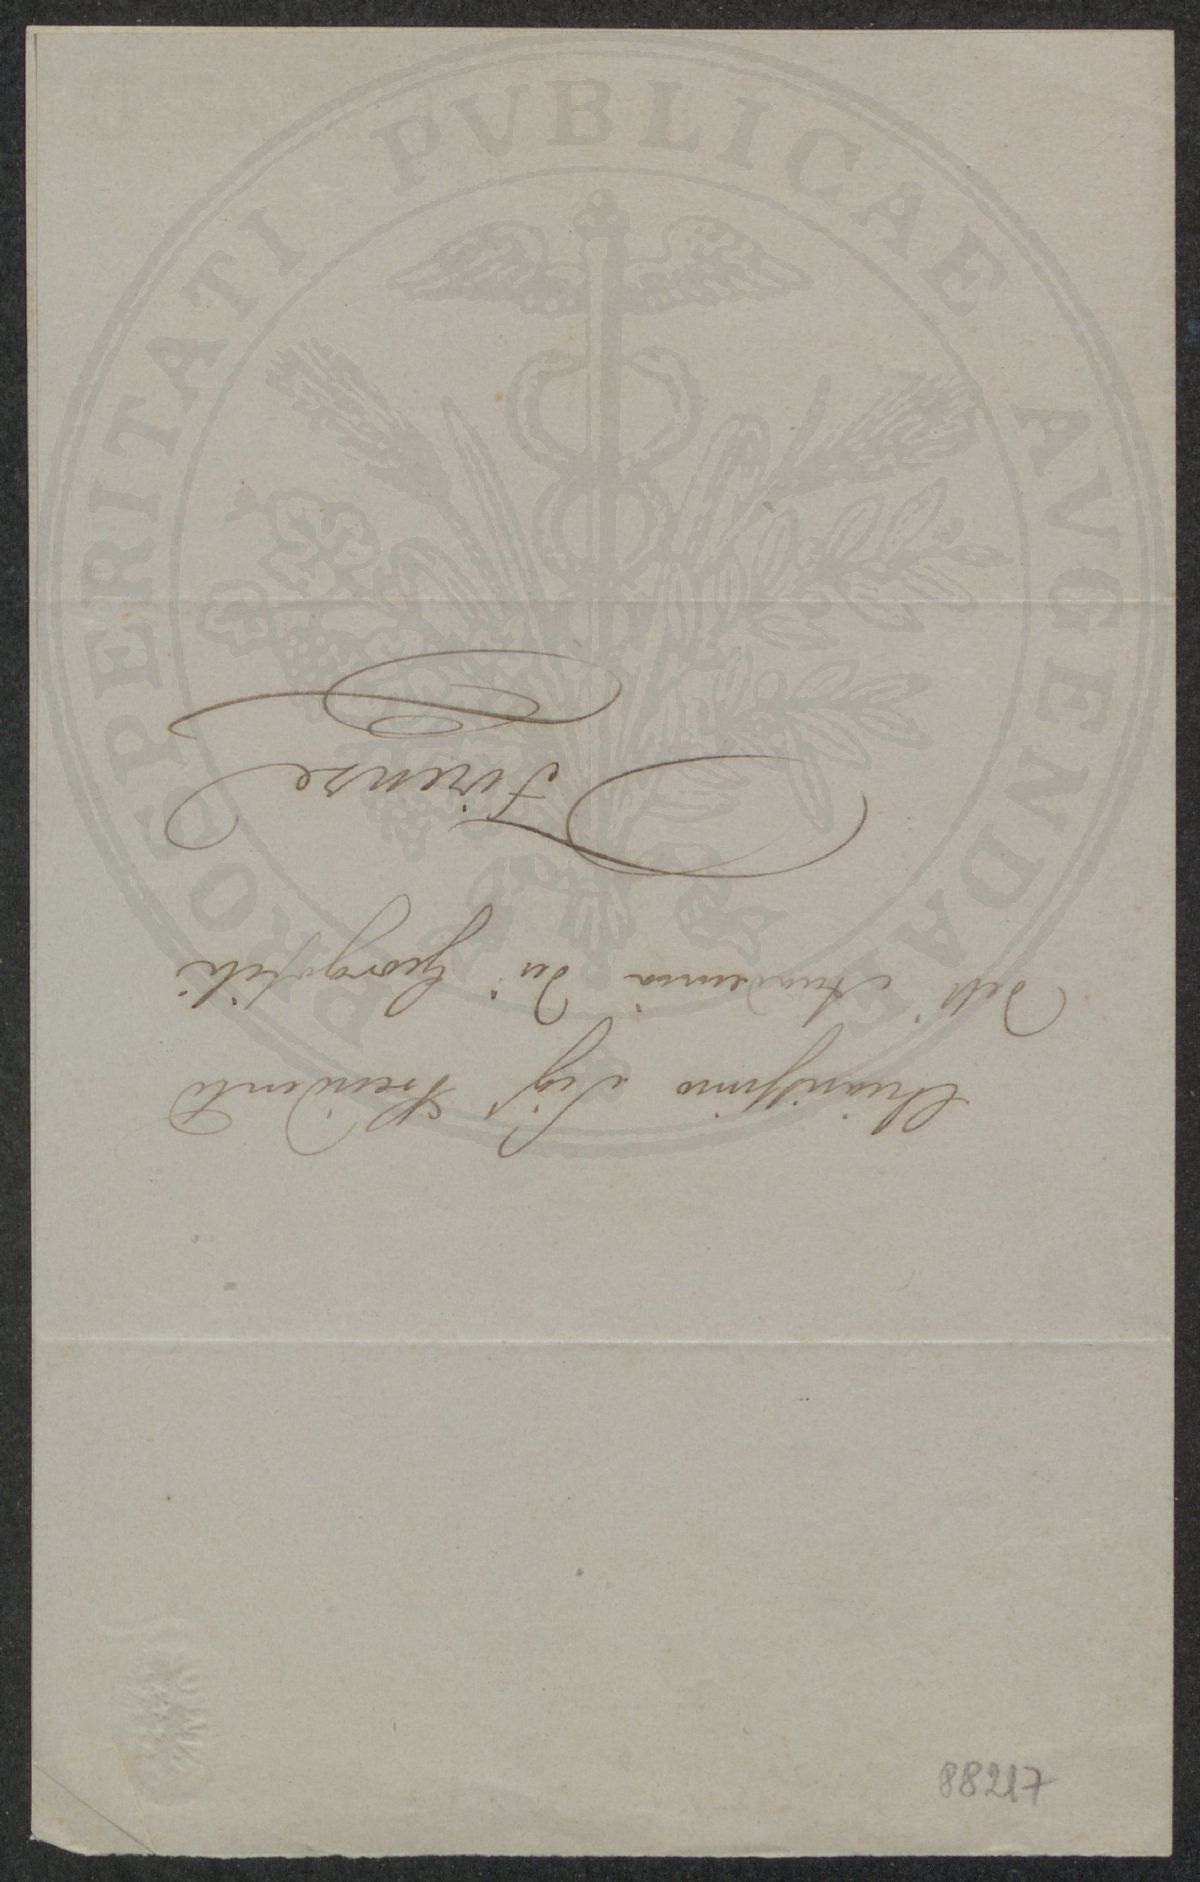 PROSPERITATI PUBLICAE AVGENDAE
Chiarissimo Sigr Presidente
dell' Accademia dei Georgofili
Firenze
88217